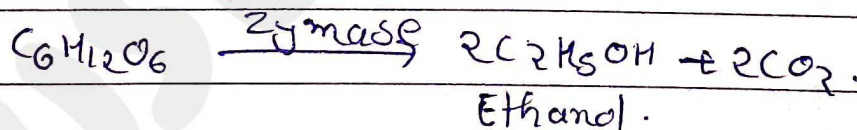 C6H12O6 Zymase → 2C2H5OH + 2CO2.
Ethanol.